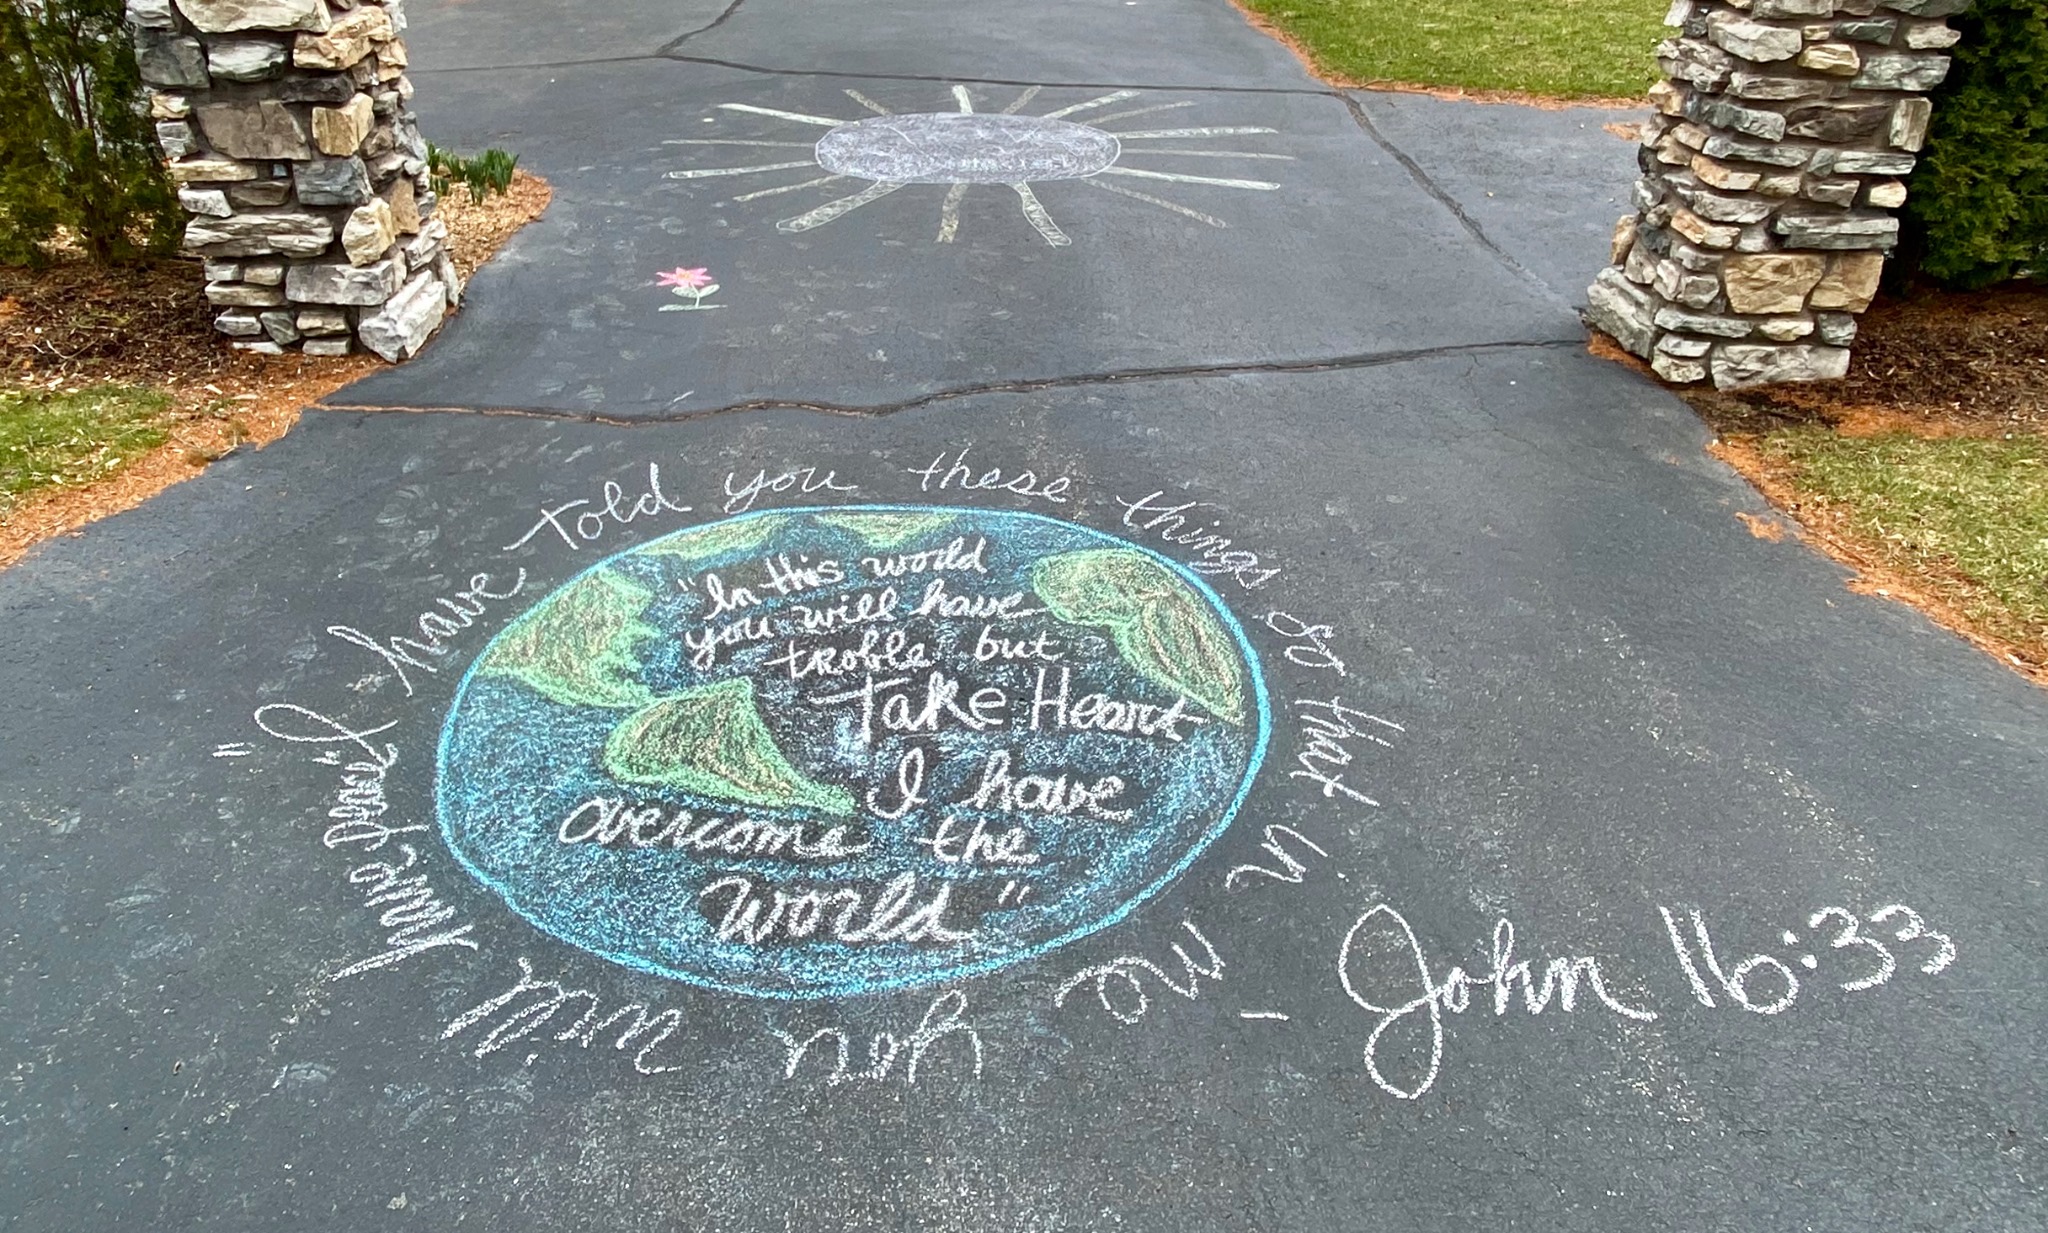 "I have told you these things so that in me you will have peace"
"In this world
you will have
troble but
Take Heart
I have
overcome the
World"
- John 16:33